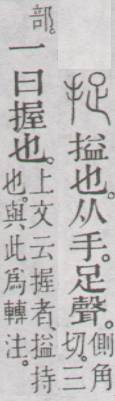 捉 搤也。从手。足聲。側角切。三
部。一曰握也。上文云握者、搤持也。與此爲轉注。